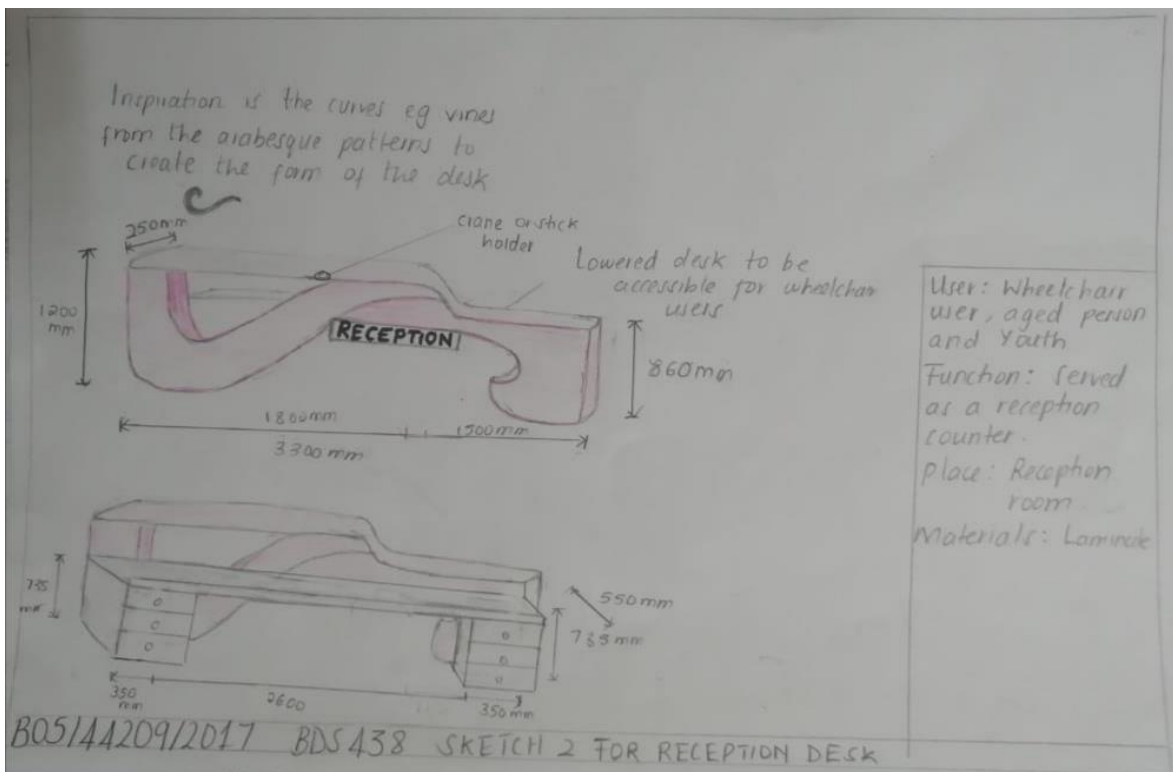 Inspiration is the curves eg vines
from the arabesque patterns to
create the form of the desk
250mm
crane or stick
holder
Lowered desk to be
accessible for wheelchair
users
1200
mm
RECEPTION
860mm
1800mm
1500mm
3300mm
User: Wheelchair
user, aged person
and Youth
Function: Served
as a reception
counter.
Place: Reception
room
Materials: Laminate
735
mm
550mm
735mm
350
mm
2600
350mm
B05/44209/2017 BDS 438 SKETCH 2 FOR RECEPTION DESK